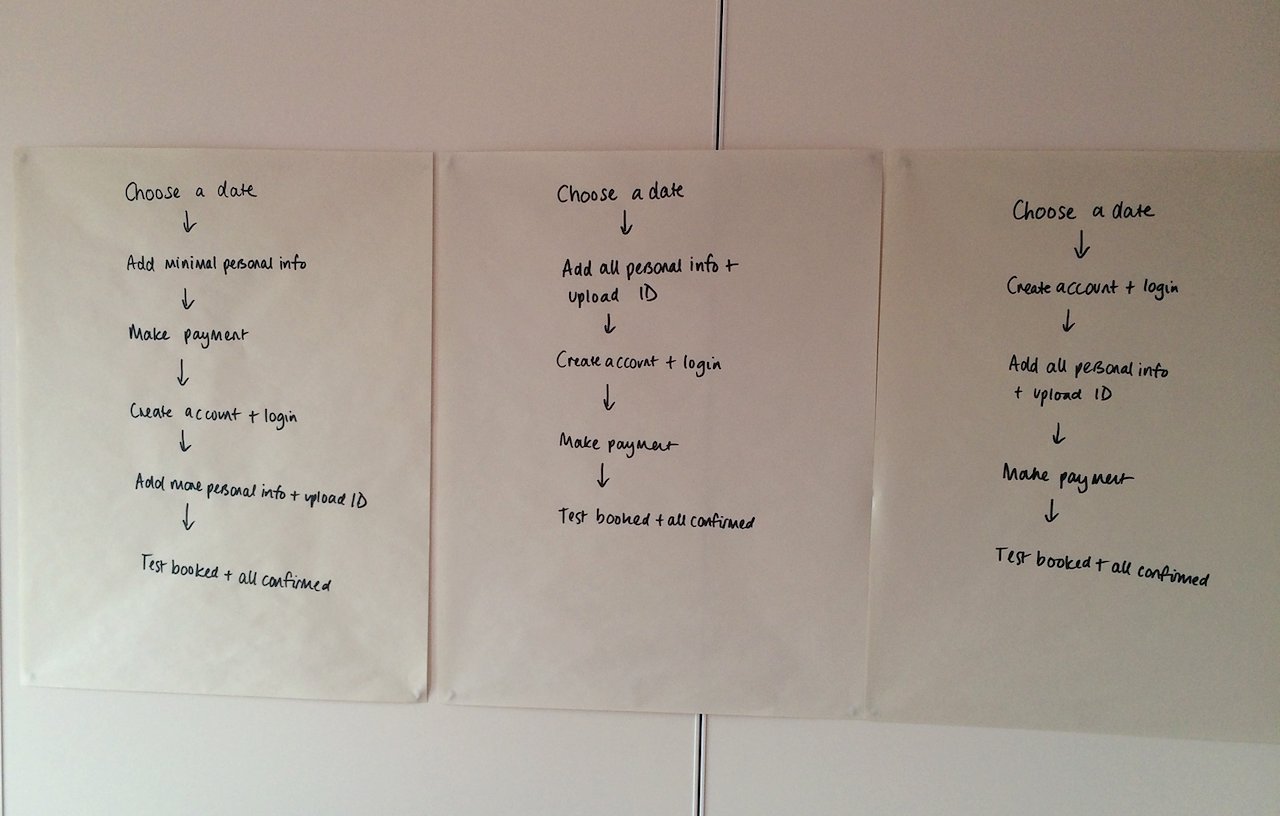 Choose a date
↓
Add minimal personal info
↓
Make payment
↓
Create account + login
↓
Add more personal info + upload ID
↓
Test booked + all confirmed
Choose a date
↓
Add all personal info +
upload ID
↓
Create account + login
↓
Make payment
↓
Test booked + all confirmed
Choose a date
↓
Create account + login
↓
Add all personal info
+ upload ID
↓
Make payment
↓
Test booked + all confirmed